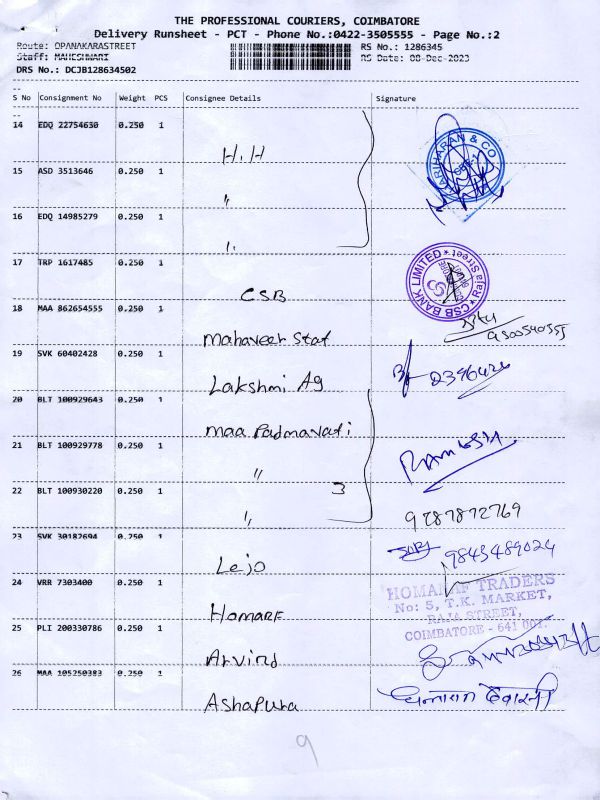 THE PROFESSIONAL COURIERS, COIMBATORE
Delivery Runsheet - PCT - Phone No.:0422-3505555 - Page No.:2
Route: OPANAKARASTREET RS No.: 1286345
Staff: MAHESHWARI RS Date: 08-Dec-2023
DRS No.: DCJB128634502
S No Consignment No Weight PCS Consignee Details Signature
14 EDQ 22754630 0.250 1
H.H
HARIHARAN & CO
15 ASD 3513646 0.250 1
"
16 EDQ 14985279 0.250 1
"
17 TRP 1617485 0.250 1
CSB
CSB BANK LIMITED
18 MAA 862654555 0.250 1
Mahaveer Stat
19 SVK 60402428 0.250 1
Lakshmi Ag
20 BLT 100929643 0.250 1
Maa Padmavati
21 BLT 100929778 0.250 1
" RAMESH
22 BLT 100930220 0.250 1
3
"
9787872769
23 SVK 30182694 0.250 1
Lejo
9843489024
24 VRR 7303400 0.250 1
HOMARF TRADERS
No: 5, T.K. MARKET,
RAJA STREET,
COIMBATORE - 641 001.
Homarf
25 PLI 200330786 0.250 1
Arvind
26 MAA 105250383 0.250 1
Ashapura
9